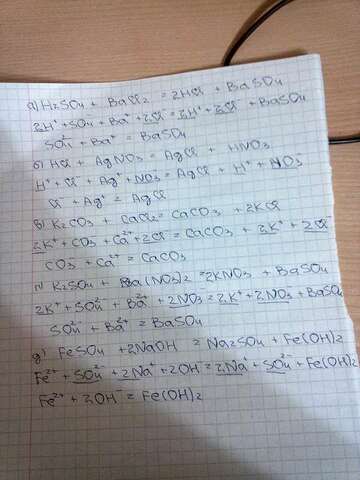 а) H₂SO₄ + BaCl₂ = 2HCl + BaSO₄
2H⁺ + SO₄²⁻ + Ba²⁺ + 2Cl⁻ = 2H⁺ + 2Cl⁻ + BaSO₄
SO₄²⁻ + Ba²⁺ = BaSO₄
б) HCl + AgNO₃ = AgCl + HNO₃
H⁺ + Cl⁻ + Ag⁺ + NO₃⁻ = AgCl + H⁺ + NO₃⁻
Cl⁻ + Ag⁺ = AgCl
в) K₂CO₃ + CaCl₂ = CaCO₃ + 2KCl
2K⁺ + CO₃²⁻ + Ca²⁺ + 2Cl⁻ = CaCO₃ + 2K⁺ + 2Cl⁻
CO₃²⁻ + Ca²⁺ = CaCO₃
г) K₂SO₄ + Ba(NO₃)₂ = 2KNO₃ + BaSO₄
2K⁺ + SO₄²⁻ + Ba²⁺ + 2NO₃⁻ = 2K⁺ + 2NO₃⁻ + BaSO₄
SO₄²⁻ + Ba²⁺ = BaSO₄
д) FeSO₄ + 2NaOH = Na₂SO₄ + Fe(OH)₂
Fe²⁺ + SO₄²⁻ + 2Na⁺ + 2OH⁻ = 2Na⁺ + SO₄²⁻ + Fe(OH)₂
Fe²⁺ + 2OH⁻ = Fe(OH)₂